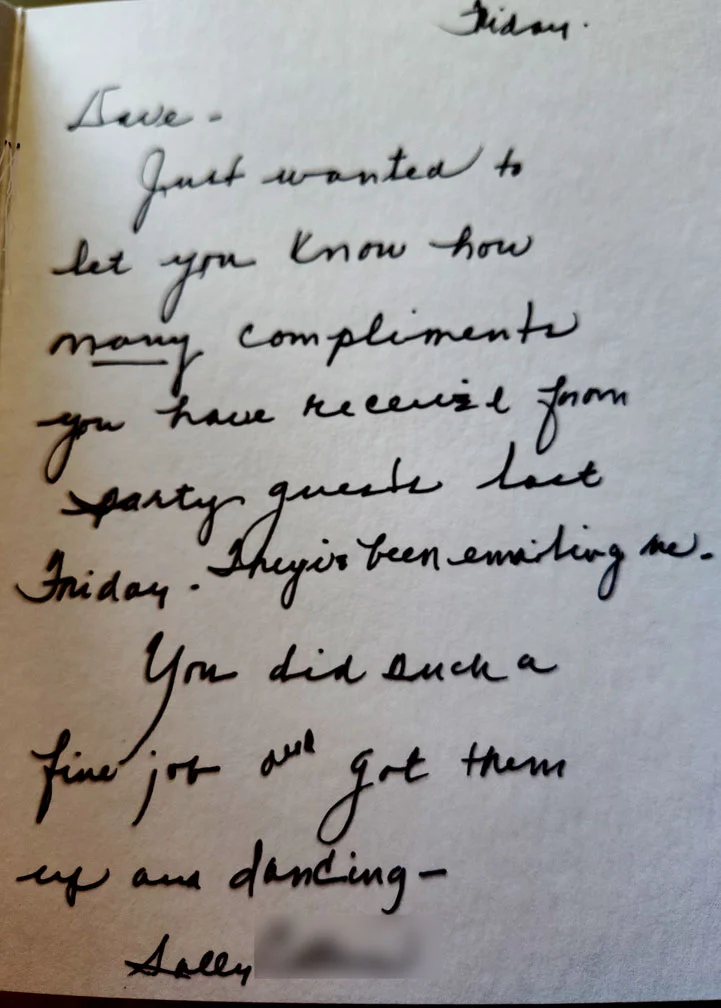 Friday.
Dave -
Just wanted to
let you know how
many compliments
you have received from
party guests last
Friday. They've been emailing me.
You did such a
fine job and got them
up and dancing -
Sally